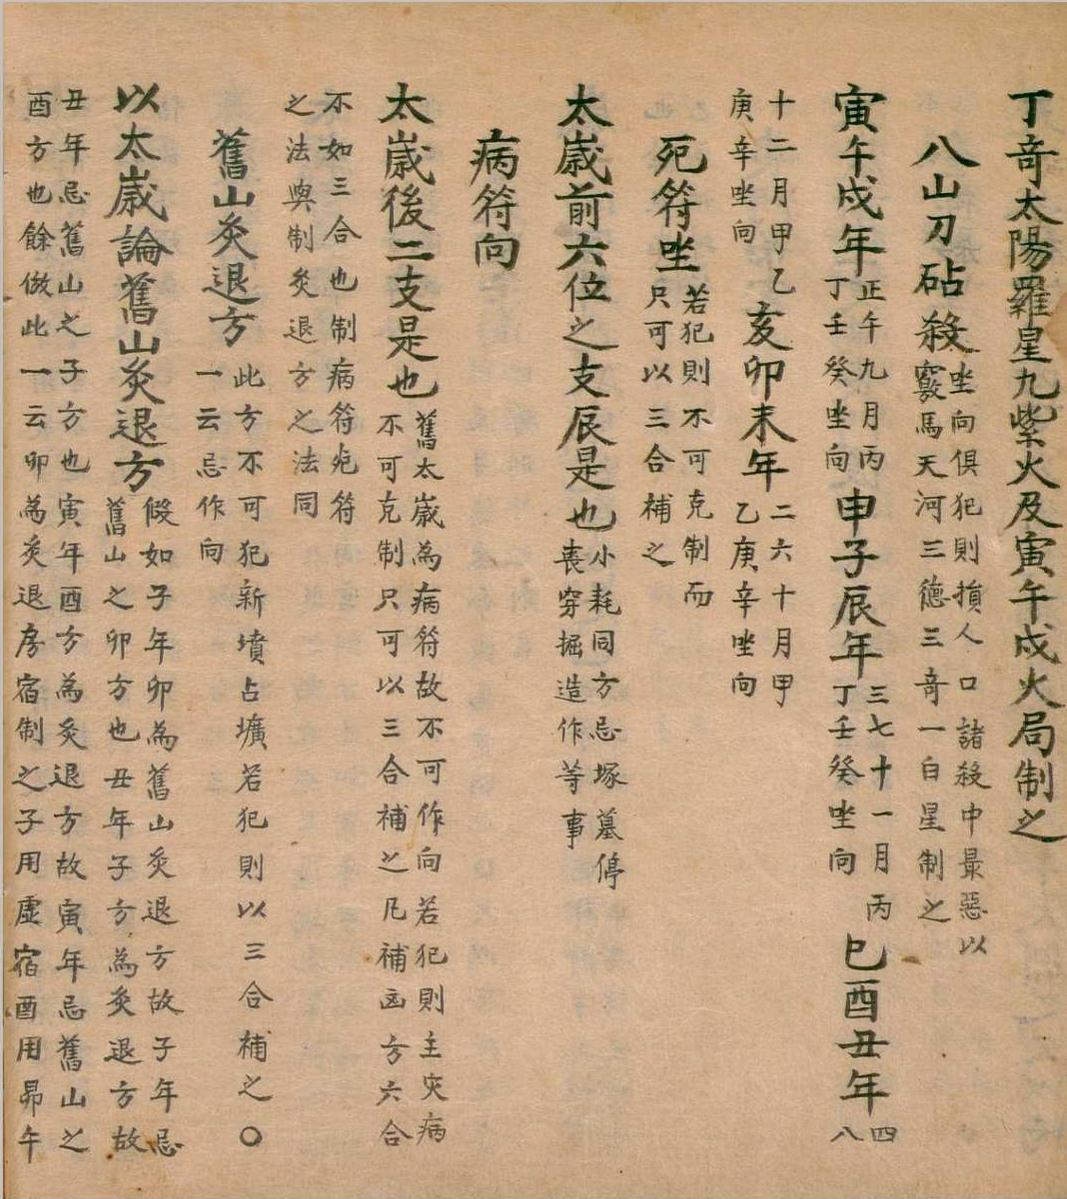 丁竒太陽羅星九紫火及寅午戍火局制之
八山刀砧殺
坐向俱犯則損人口諸殺中最惡以
竅馬天河三德三竒一白星制之
寅午戍年
正午九月丙
丁壬癸坐向
申子辰年
三七十一月丙
丁壬癸坐向
巳酉丑年
四
八
十二月甲乙
庚辛坐向
亥卯未年
二六十月甲
乙庚辛坐向
死符坐
若犯則不可克制而
只可以三合補之
太歲前六位之支辰是也
小耗同方忌塚墓停
喪穿掘造作等事
病符向
太歲後二支是也
舊太歲為病符故不可作向若犯則主灾病
不可克制只可以三合補之凡補凶方六合
不如三合也制病符死符
之法與制灸退方之法同
舊山灸退方
此方不可犯新墳占壙若犯則以三合補之〇
一云忌作向
以太歲論舊山灸退方
假如子年卯為舊山灸退方故子年忌
舊山之卯方也丑年子方為灸退方故
丑年忌舊山之子方也寅年酉方為灸退方故寅年忌舊山之
酉方也餘倣此一云卯為灸退房宿制之子用虛宿酉用昴午